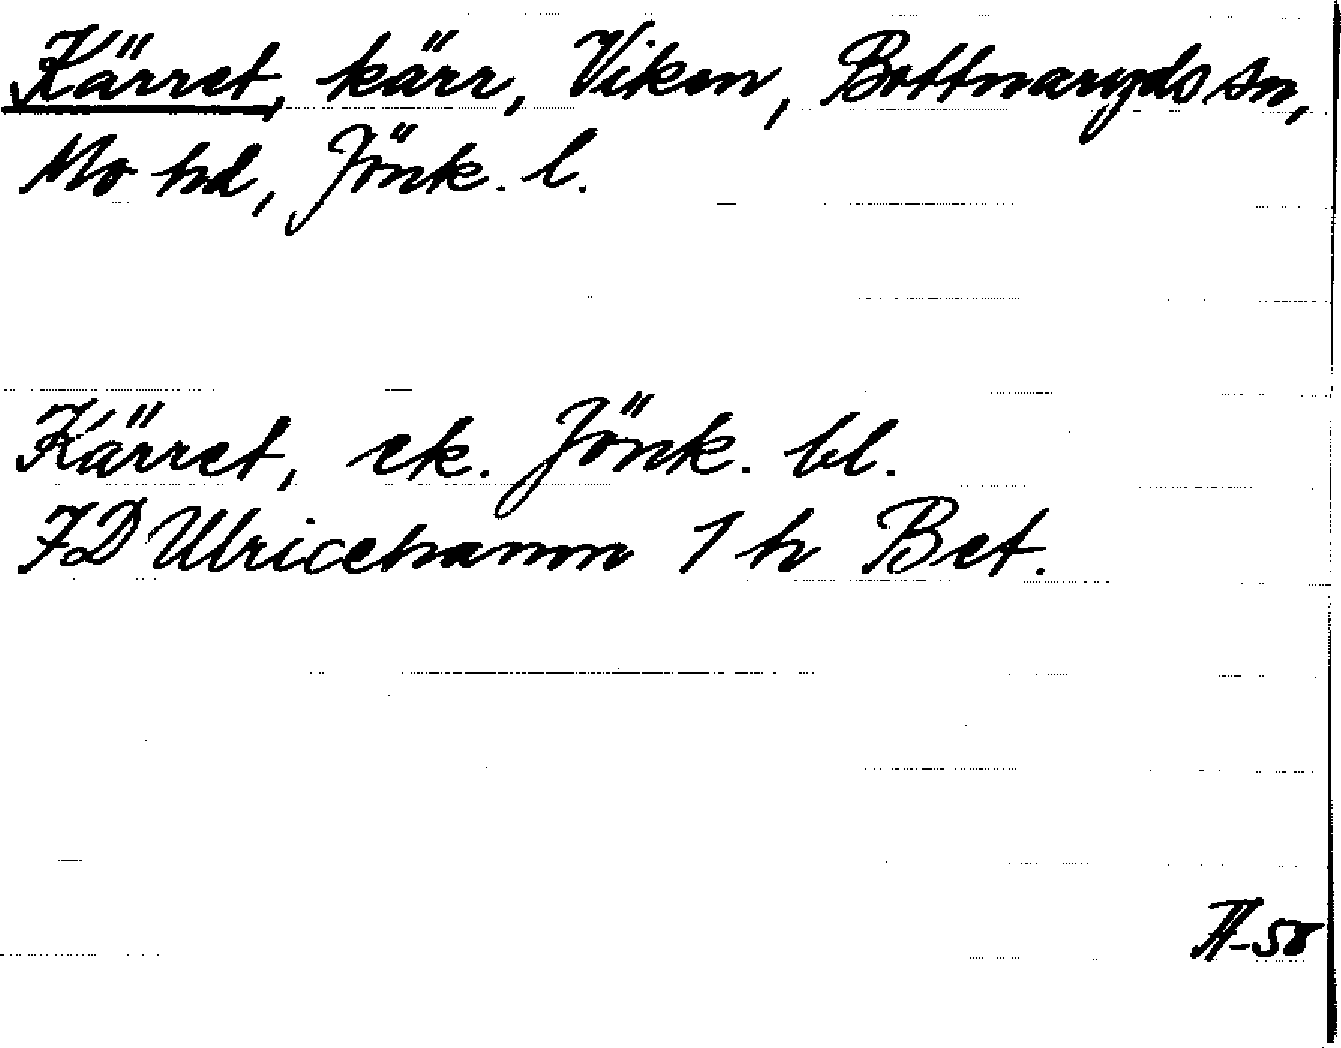 Kärret, kärr, Viken, Bottnaryds sn,
Mo hd, Jönk. l.
Kärret, ek. Jönk. bl.
JD Ulricehamn 1 h Bet.